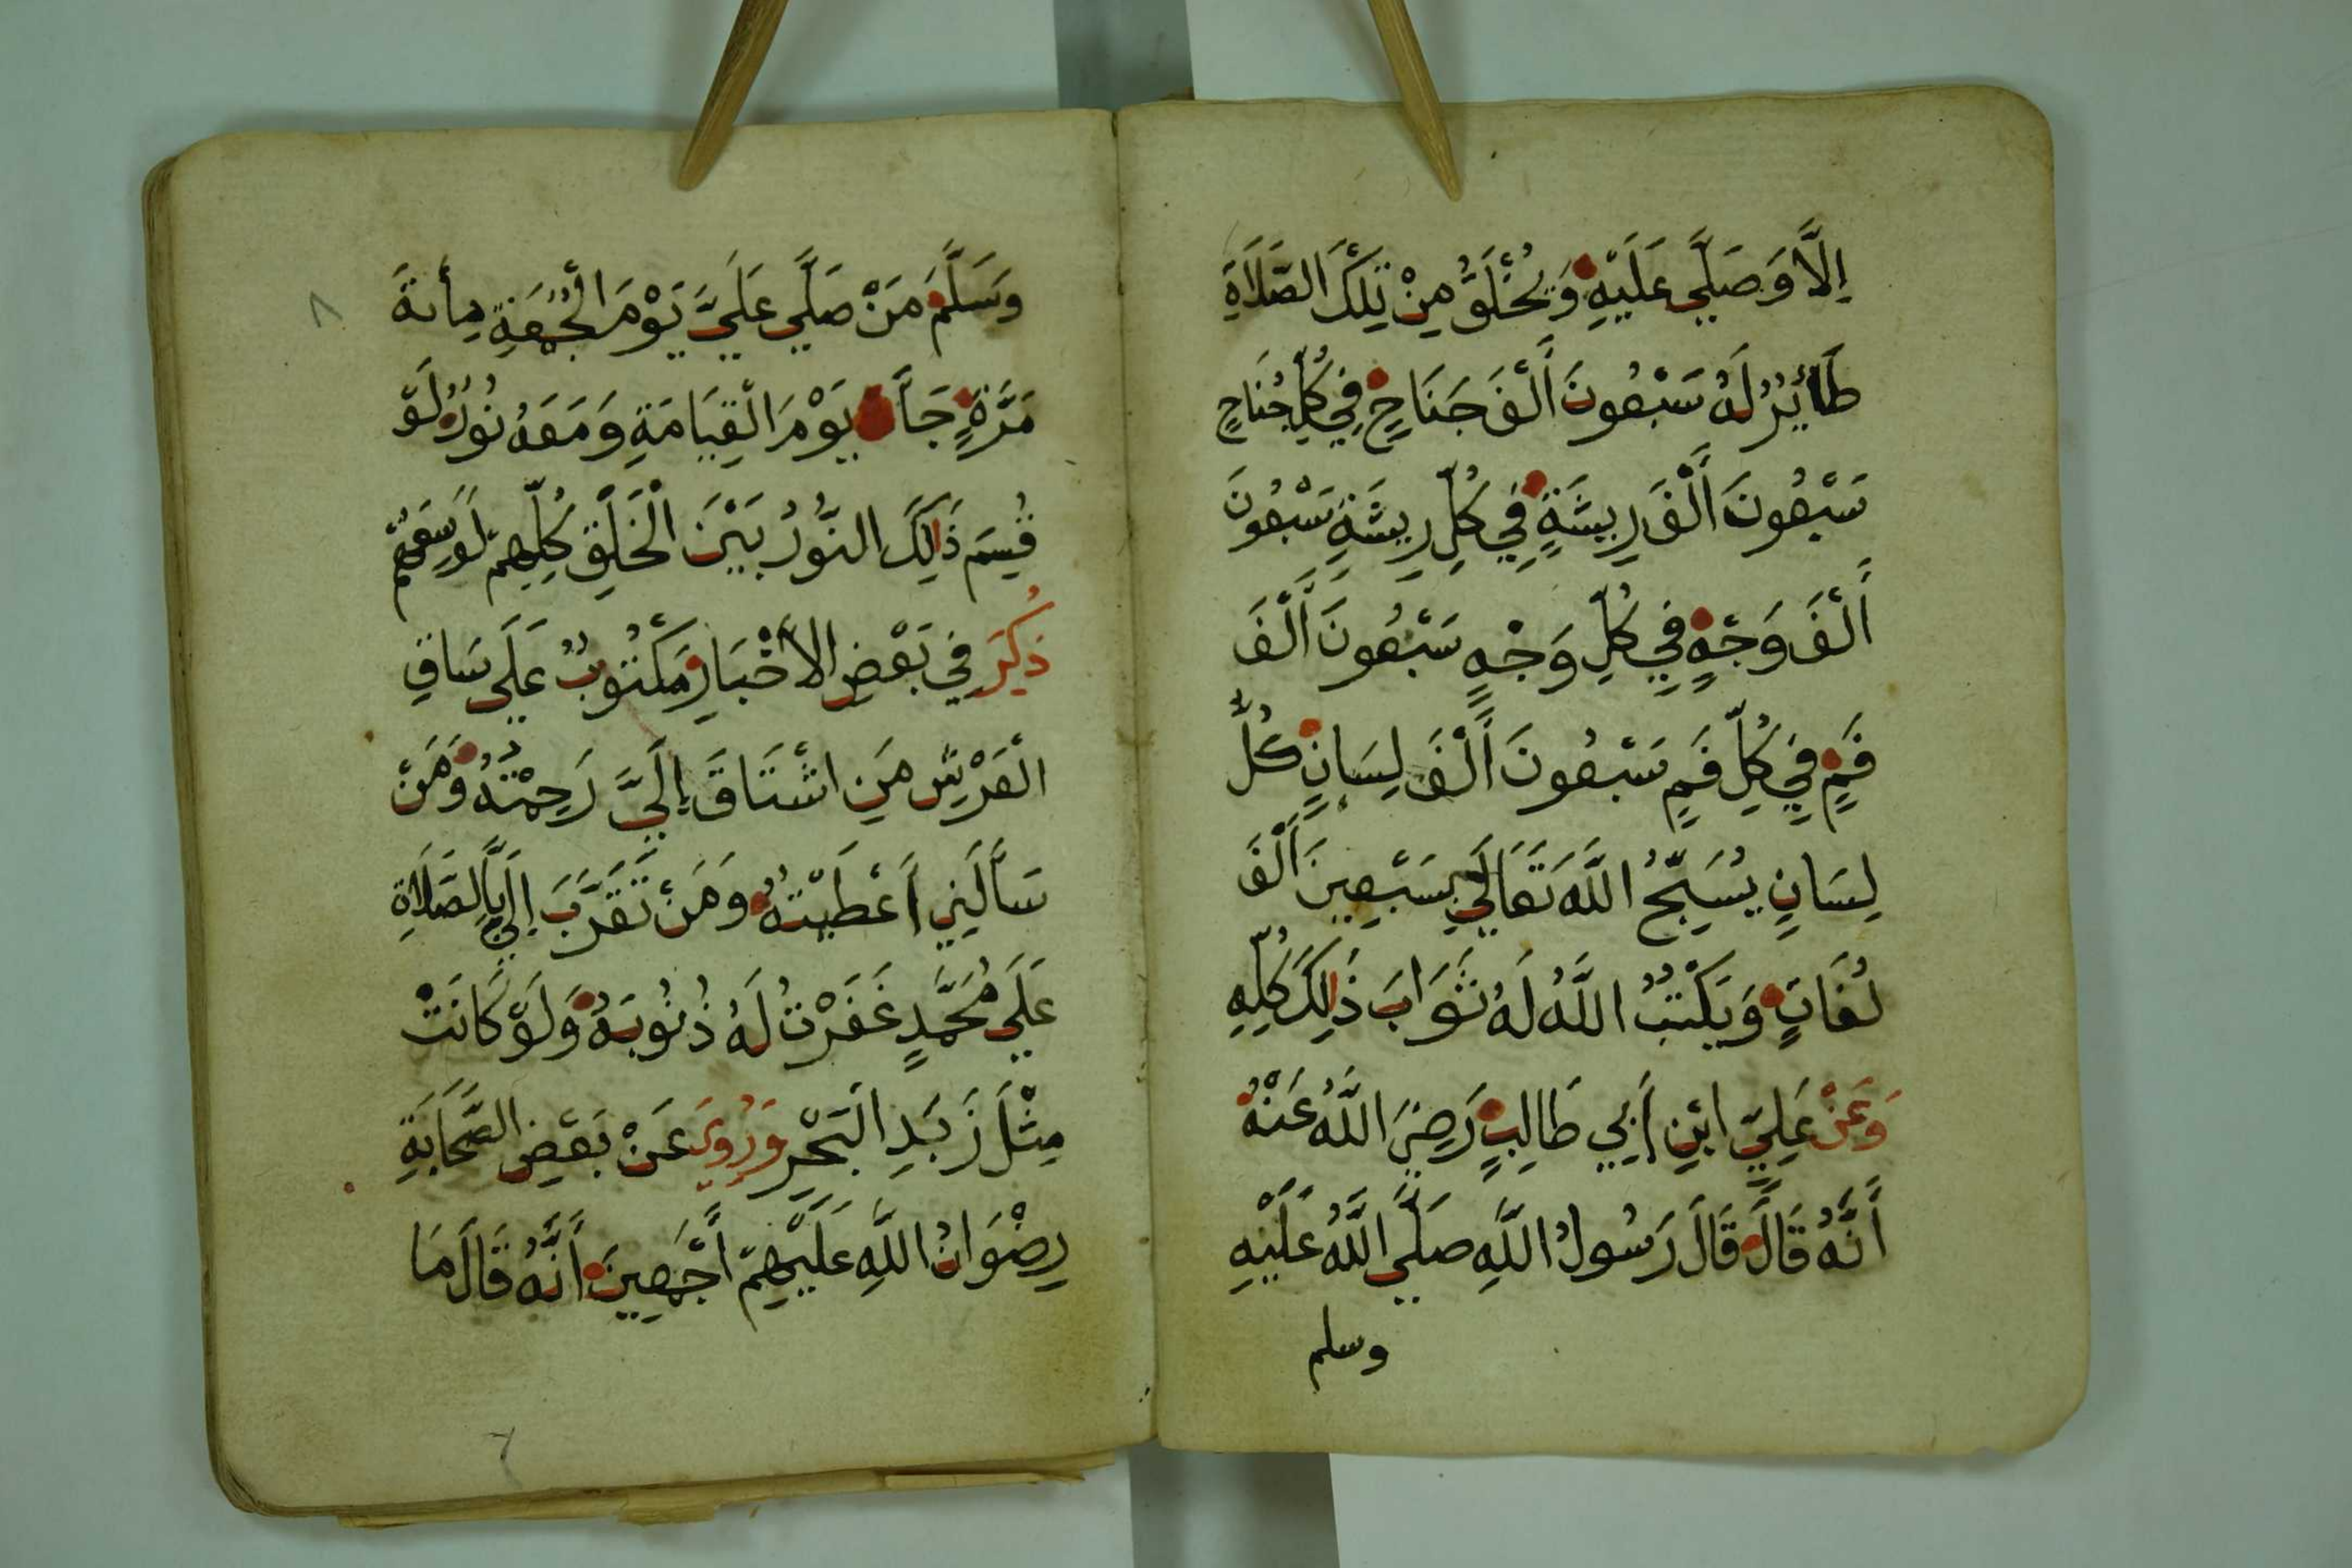 إِلَّا وَصَلَّى عَلَيْهِ وَيُخْلَقُ مِنْ تِلْكَ الصَّلَاةِ
طَائِرٌ لَهُ سَبْعُونَ أَلْفَ جَنَاحٍ فِي كُلِّ جَنَاحٍ
سَبْعُونَ أَلْفَ رِيشَةٍ فِي كُلِّ رِيشَةٍ سَبْعُونَ
أَلْفَ وَجْهٍ فِي كُلِّ وَجْهٍ سَبْعُونَ أَلْفَ
فَمٍ فِي كُلِّ فَمٍ سَبْعُونَ أَلْفَ لِسَانٍ كُلُّ
لِسَانٍ يُسَبِّحُ اللَّهَ تَعَالَى بِسَبْعِينَ أَلْفَ
لُغَاتٍ وَيَكْتُبُ اللَّهُ لَهُ ثَوَابَ ذَلِكَ كُلِّهِ
وَعَنْ عَلِيِّ ابْنِ أَبِي طَالِبٍ رَضِيَ اللَّهُ عَنْهُ
أَنَّهُ قَالَ قَالَ رَسُولُ اللَّهِ صَلَّى اللَّهُ عَلَيْهِ
وسلم
وَسَلَّمَ مَنْ صَلَّى عَلَيَّ يَوْمَ الْجُمُعَةِ مِأَئةَ
مَرَّةٍ جَآءَ يَوْمَ الْقِيَامَةِ وَمَعَهُ نُورٌ لَوْ
قُسِمَ ذَلِكَ النُّورُ بَيْنَ الْخَلْقِ كُلِّهِمْ لَوَسِعَهُمْ
ذُكِرَ فِي بَعْضِ الْأَخْبَارِ مَكْتُوبٌ عَلَى سَاقِ
الْعَرْشِ مَنِ اشْتَاقَ إِلَيَّ رَحِمْتُهُ وَمَنْ
سَأَلَنِي أَعْطَيْتُهُ وَمَنْ تَقَرَّبَ إِلَيَّ بِالصَّلَاةِ
عَلَى مُحَمَّدٍ غَفَرْتُ لَهُ ذُنُوبَهُ وَلَوْ كَانَتْ
مِثْلَ زَبَدِ الْبَحْرِ وَرُوِيَ عَنْ بَعْضِ الصَّحَابَةِ
رِضْوَانُ اللَّهِ عَلَيْهِمْ أَجْمَعِينَ أَنَّهُ قَالَ مَا
٨